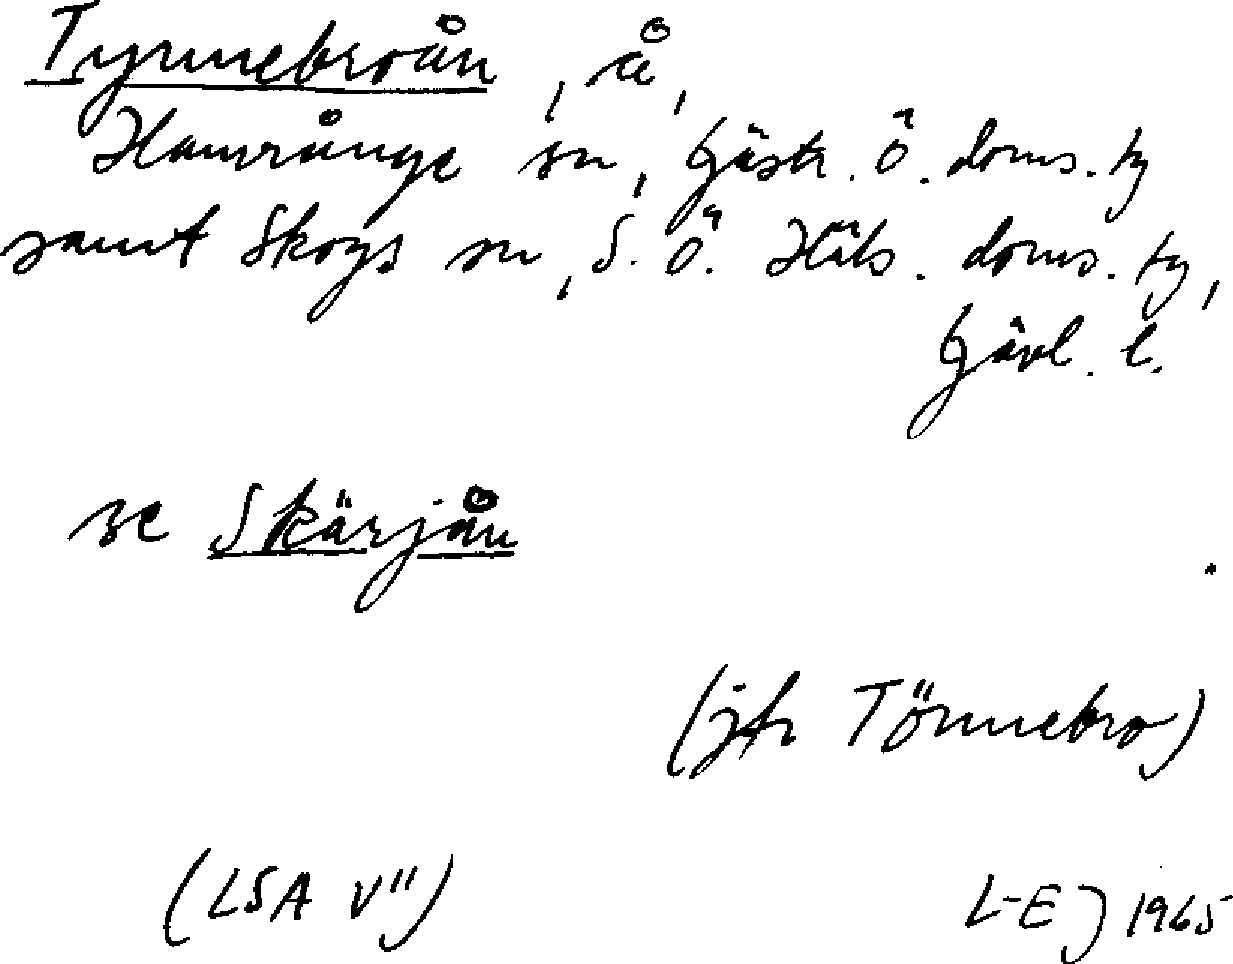 Tynnebroån, å,
Hamrånge sn, Gästr. Ö. doms. tg
samt Skogs sn, S. Ö. Häls. doms. tg,
Gävl. l.
se Skärjån
(jfr Tönnebro)
(LSA V")
L-EJ 1965